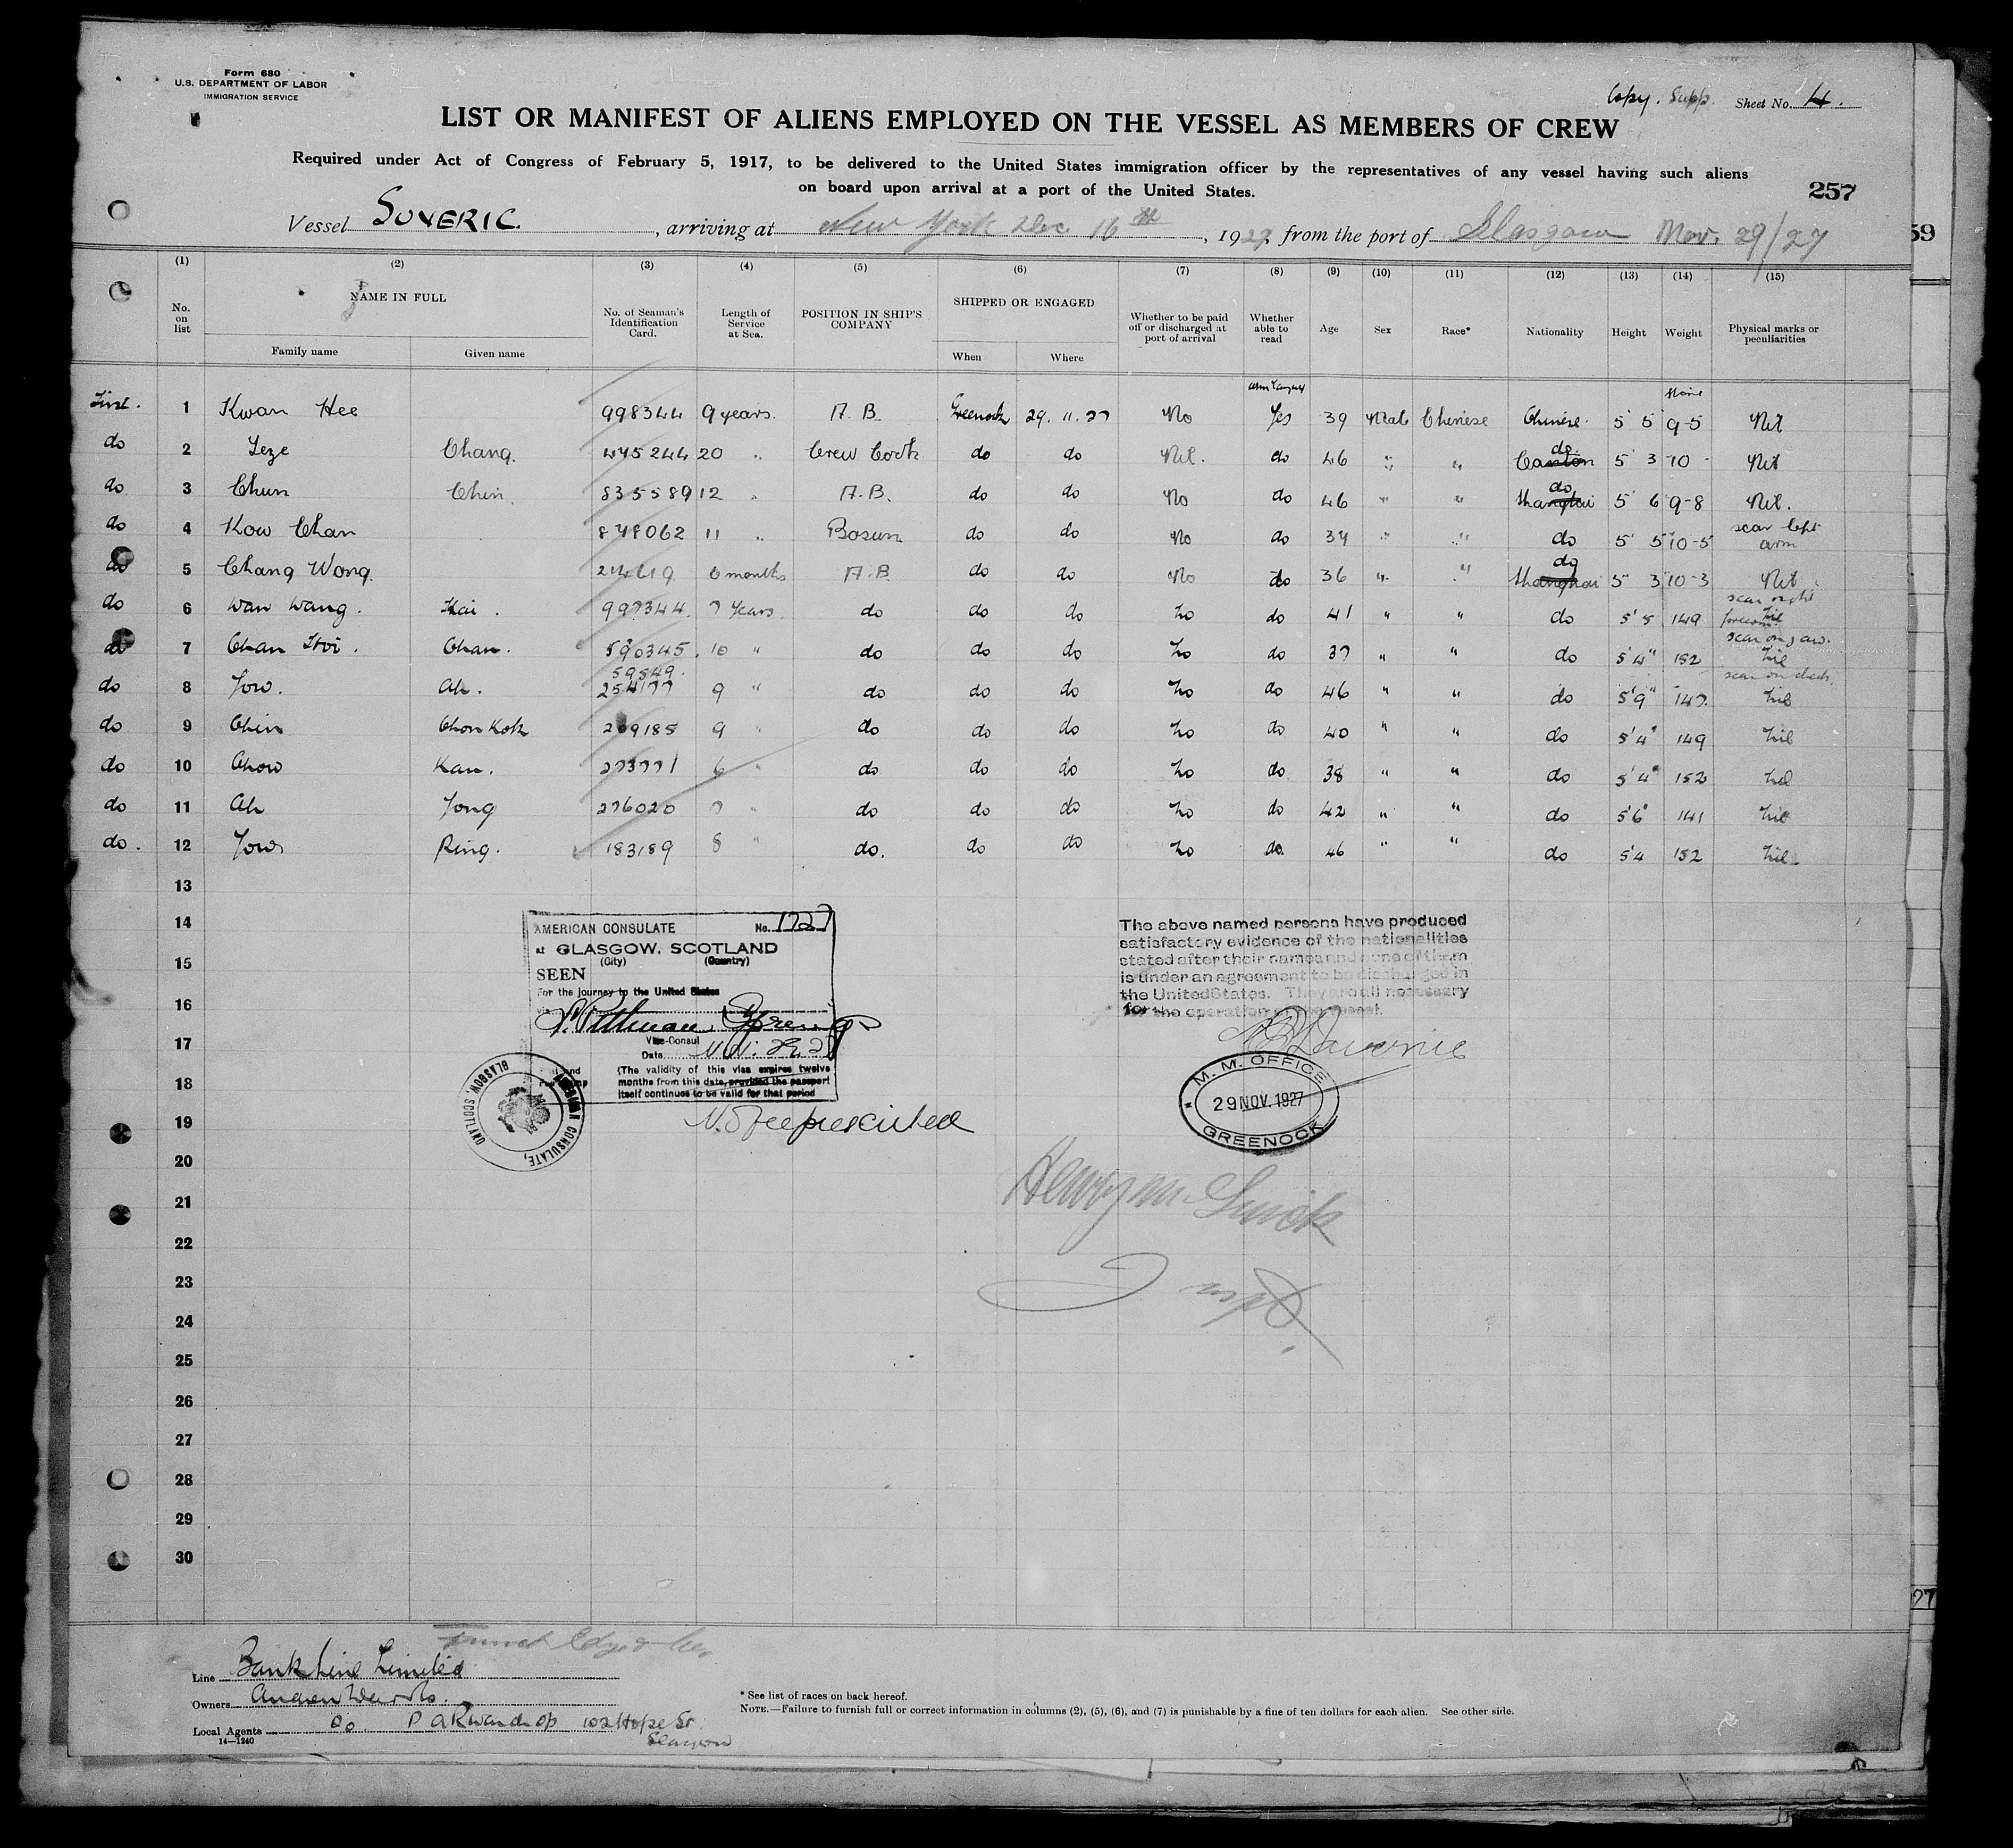 Form 680
U.S. DEPARTMENT OF LABOR
IMMIGRATION SERVICE
Copy. Supp. Sheet No. 4.
LIST OR MANIFEST OF ALIENS EMPLOYED ON THE VESSEL AS MEMBERS OF CREW
Required under Act of Congress of February 5, 1917, to be delivered to the United States immigration officer by the representatives of any vessel having such aliens
on board upon arrival at a port of the United States.
257
Vessel SUVERIC. , arriving at New York Dec. 16th , 1927, from the port of Glasgow Nov. 29/27
59
(1) (2) (3) (4) (5) (6) (7) (8) (9) (10) (11) (12) (13) (14) (15)
No. on list NAME IN FULL No. of Seaman's Identification Card. Length of Service at Sea. POSITION IN SHIP'S COMPANY SHIPPED OR ENGAGED Whether to be paid off or discharged at port of arrival Whether able to read Age Sex Race* Nationality Height Weight Physical marks or peculiarities
Family name Given name When Where
First. 1 Kwan Hee 998344 9 years. A. B. Greenock 29. 11. 27 No Yes 39 Male Chinese Chinese. 5 5 9-5 Nil
do 2 Leze Chang. 445244 20 " Crew Cook do do Nil. do 46 " " do Canton 5 3 10 - Nil
do 3 Chun Chin. 835589 12 " A. B. do do No do 46 " " do Shanghai 5 6 9-8 Nil.
do 4 Kow Chan 848062 11 " Bosun do do No do 34 " " do 5 5 10-5 scar left arm
do 5 Chang Wong. 6 months A. B. do do No do 36 " " do Shanghai 5 3 10-3 Nil
do 6 Wan Wang. Kai. 997344. 7 Years. do do do No do 41 " " do 5'5 149 scar right forearm Nil
do 7 Chan Hoi. Chan. 590345. 10 " do do do No do 37 " " do 5'4" 152 scar on jaw. Nil
59549.
do 8 Jow. Ah. 254177 9 " do do do No do 46 " " do 5'9" 147 Nil
do 9 Chin Chon Kok 269185 9 " do do do No do 40 " " do 5'4" 149 Nil
do 10 Chow Kan. 273771 6 " do do do No do 38 " " do 5'4" 152 Nil
do 11 Ah Jong 276020 7 " do do do No do 42 " " do 5'6" 141 Nil
do. 12 Jow Ring. 183189 8 " do. do do No do. 46 " " do 5'4 152 Nil
13
14
15
16
17
18
19
20
21
22
23
24
25
26
27
28
29
30
AMERICAN CONSULATE No. 1727
at GLASGOW, SCOTLAND
(City) (Country)
SEEN
For the journey to the United States
via
Vice-Consul
Date
(The validity of this visa expires twelve
months from this date, provided the passport
itself continues to be valid for that period
AMERICAN CONSULATE, GLASGOW, SCOTLAND
No fee prescribed
The above named persons have produced
satisfactory evidence of the nationalities
stated after their names and none of them
is under an agreement to be discharged in
the United States. They are all necessary
for the operation of the vessel.
M. M. OFFICE
29 NOV. 1927
GREENOCK
Line Bank Line Limited
Owners Andrew Weir & Co.
Local Agents 102 Hope St
Glasgow
14—1240
* See list of races on back hereof.
NOTE.—Failure to furnish full or correct information in columns (2), (5), (6), and (7) is punishable by a fine of ten dollars for each alien. See other side.
27